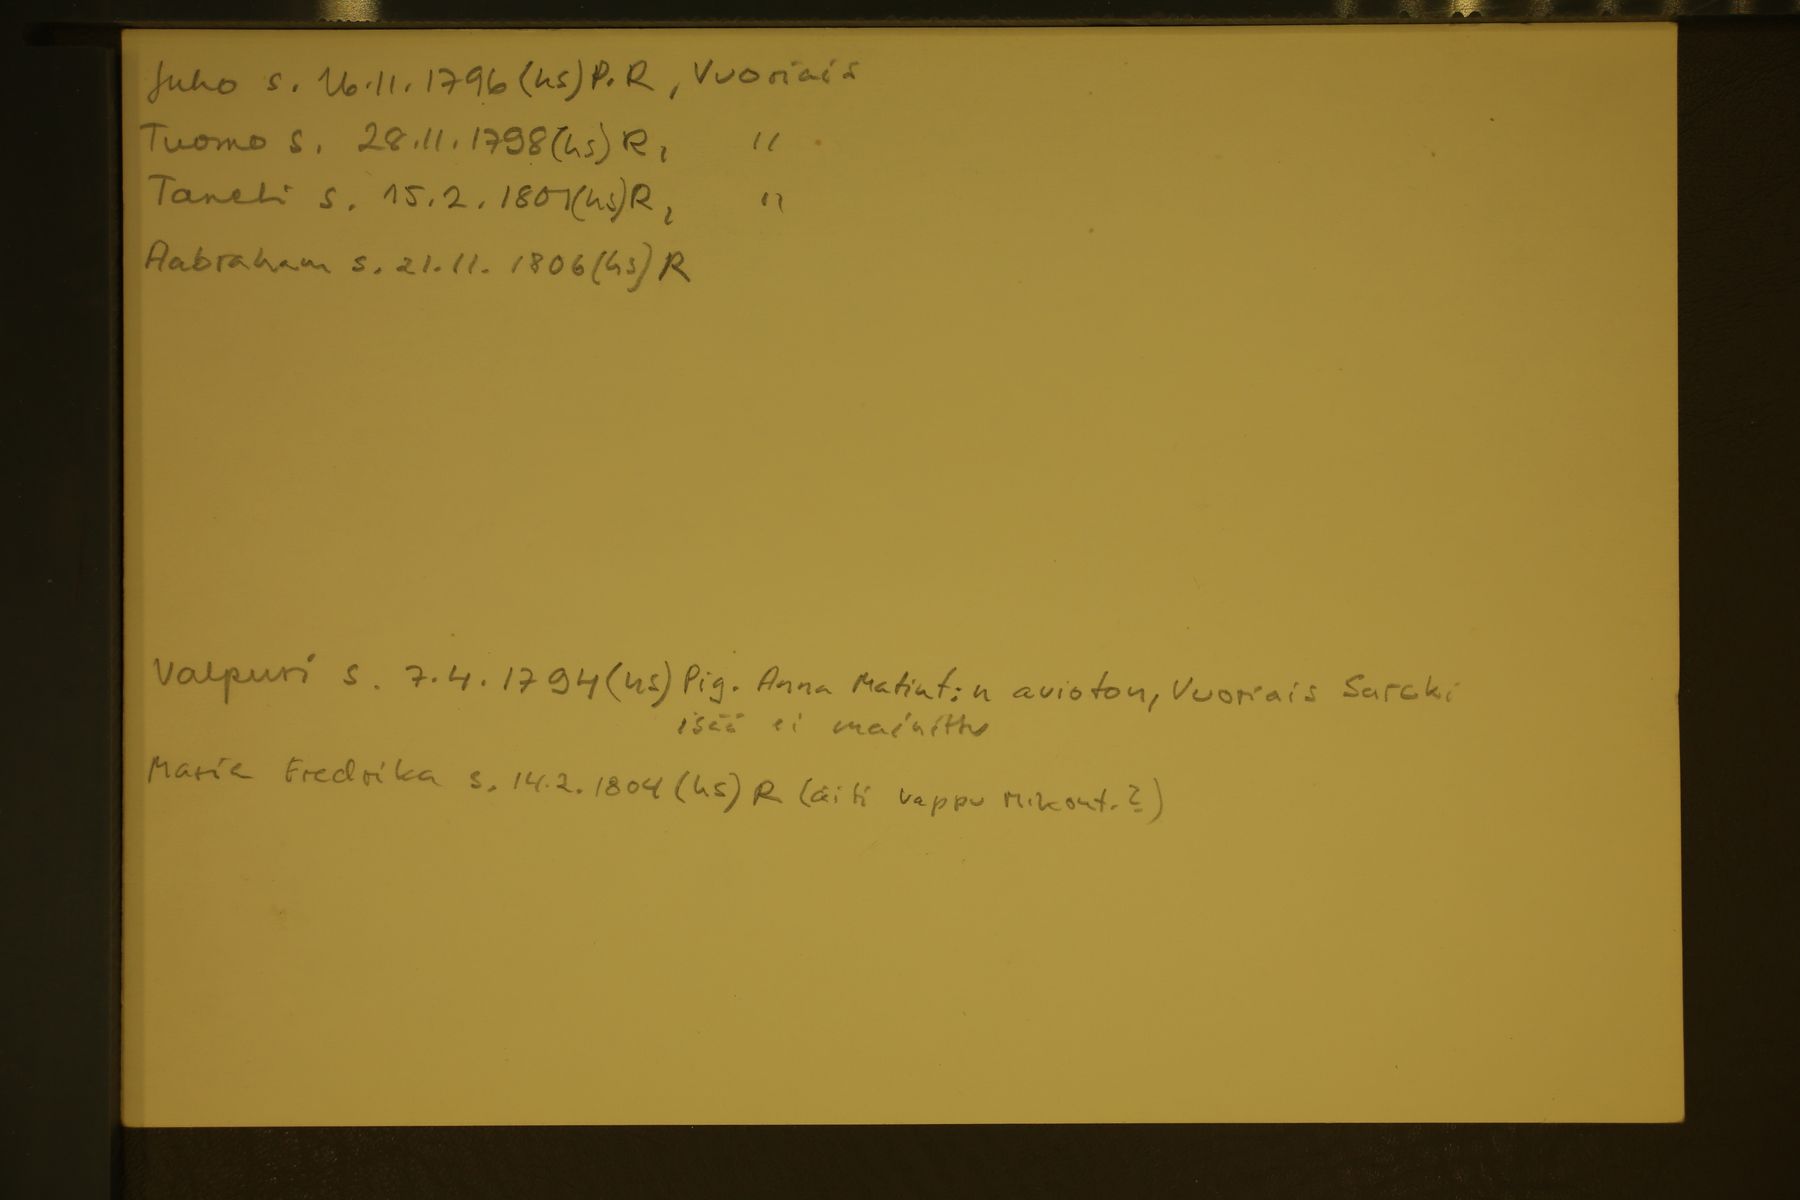 Juho s. 16.11.1796 (hs) P.R, Vuoriais
Tuomo s. 28.11.1798 (hs) R, "
Taneli s. 15.2.1801 (hs) R, "
Aabraham s. 21.11.1806 (hs) R
Valpuri s. 7.4.1794 (hs) Pig. Anna Matint:n avioton, Vuoriais Saraki
isää ei mainittu
Maria Fredrika s. 14.2.1804 (hs) R (äiti Vappu Mikont.?)